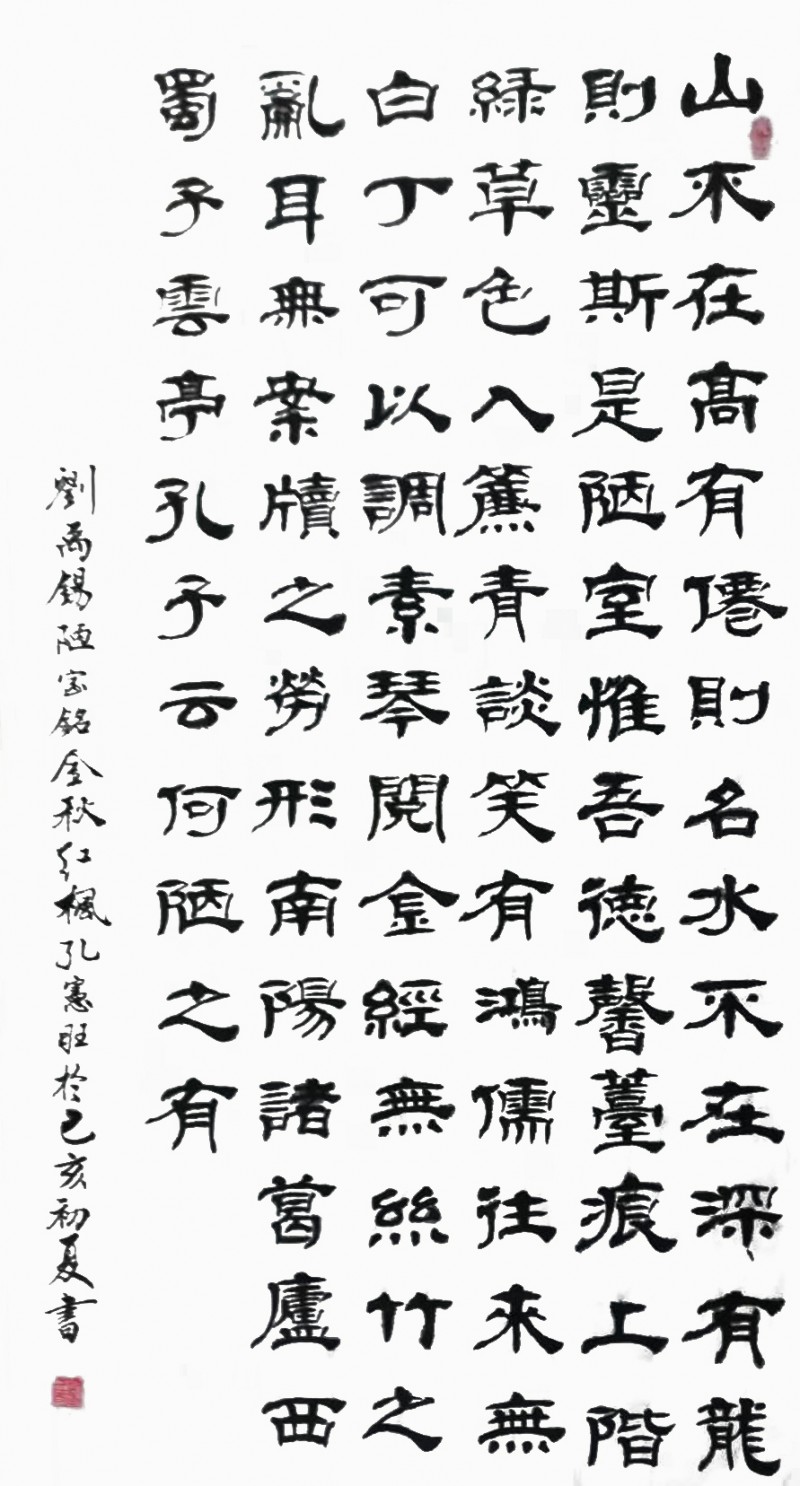 山不在高有僊則名水不在深有龍
則靈斯是陋室惟吾德馨薹痕上階
綠草色入簾青談笑有鴻儒往来無
白丁可以調素琴閱金經無絲竹之
亂耳無案牘之勞形南陽諸葛廬西
蜀子雲亭孔子云何陋之有
劉禹錫陋室銘金秋红楓孔憲旺於己亥初夏書